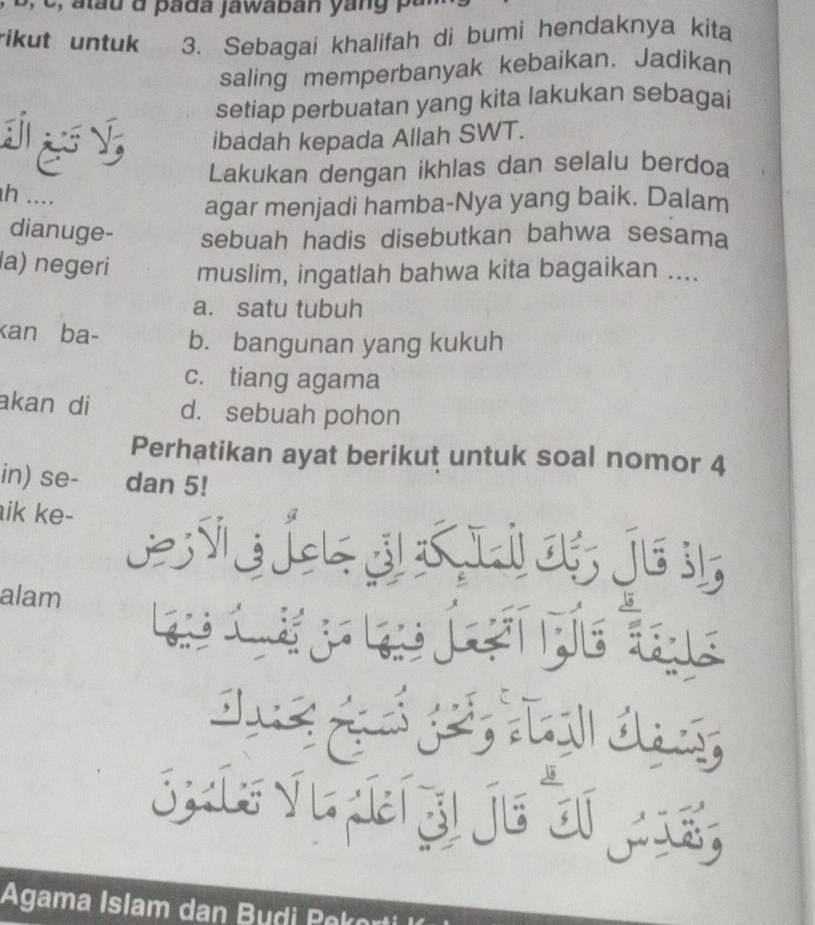 pada jawaban yang
rikut untuk
وَلَا تَبْغِ
h ....
dianuge-
la) negeri
kan ba-
akan di
in) se-
aik ke-
alam
3. Sebagai khalifah di bumi hendaknya kita
saling memperbanyak kebaikan. Jadikan
setiap perbuatan yang kita lakukan sebagai
ibadah kepada Allah SWT.
Lakukan dengan ikhlas dan selalu berdoa
agar menjadi hamba-Nya yang baik. Dalam
sebuah hadis disebutkan bahwa sesama
muslim, ingatlah bahwa kita bagaikan ....
a. satu tubuh
b. bangunan yang kukuh
c. tiang agama
d. sebuah pohon
Perhatikan ayat berikut untuk soal nomor 4
dan 5!
وَإِذْ قَالَ رَبُّكَ لِلْمَلٰٓئِكَةِ إِنِّيْ جَاعِلٌ فِى الْأَرْضِ
خَلِيْفَةً ۗ قَالُوْٓا أَتَجْعَلُ فِيْهَا مَنْ يُّفْسِدُ فِيْهَا
وَيَسْفِكُ الدِّمَآءَ ۚ وَنَحْنُ نُسَبِّحُ بِحَمْدِكَ
وَنُقَدِّسُ لَكَ ۗ قَالَ إِنِّيْٓ أَعْلَمُ مَا لَا تَعْلَمُوْنَ
Agama Islam dan Budi